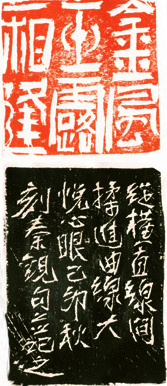 金風
玉露
一相逢
縱橫直線間
揉進曲線大
悅心眼己卯秋
刻秦觀句並記之